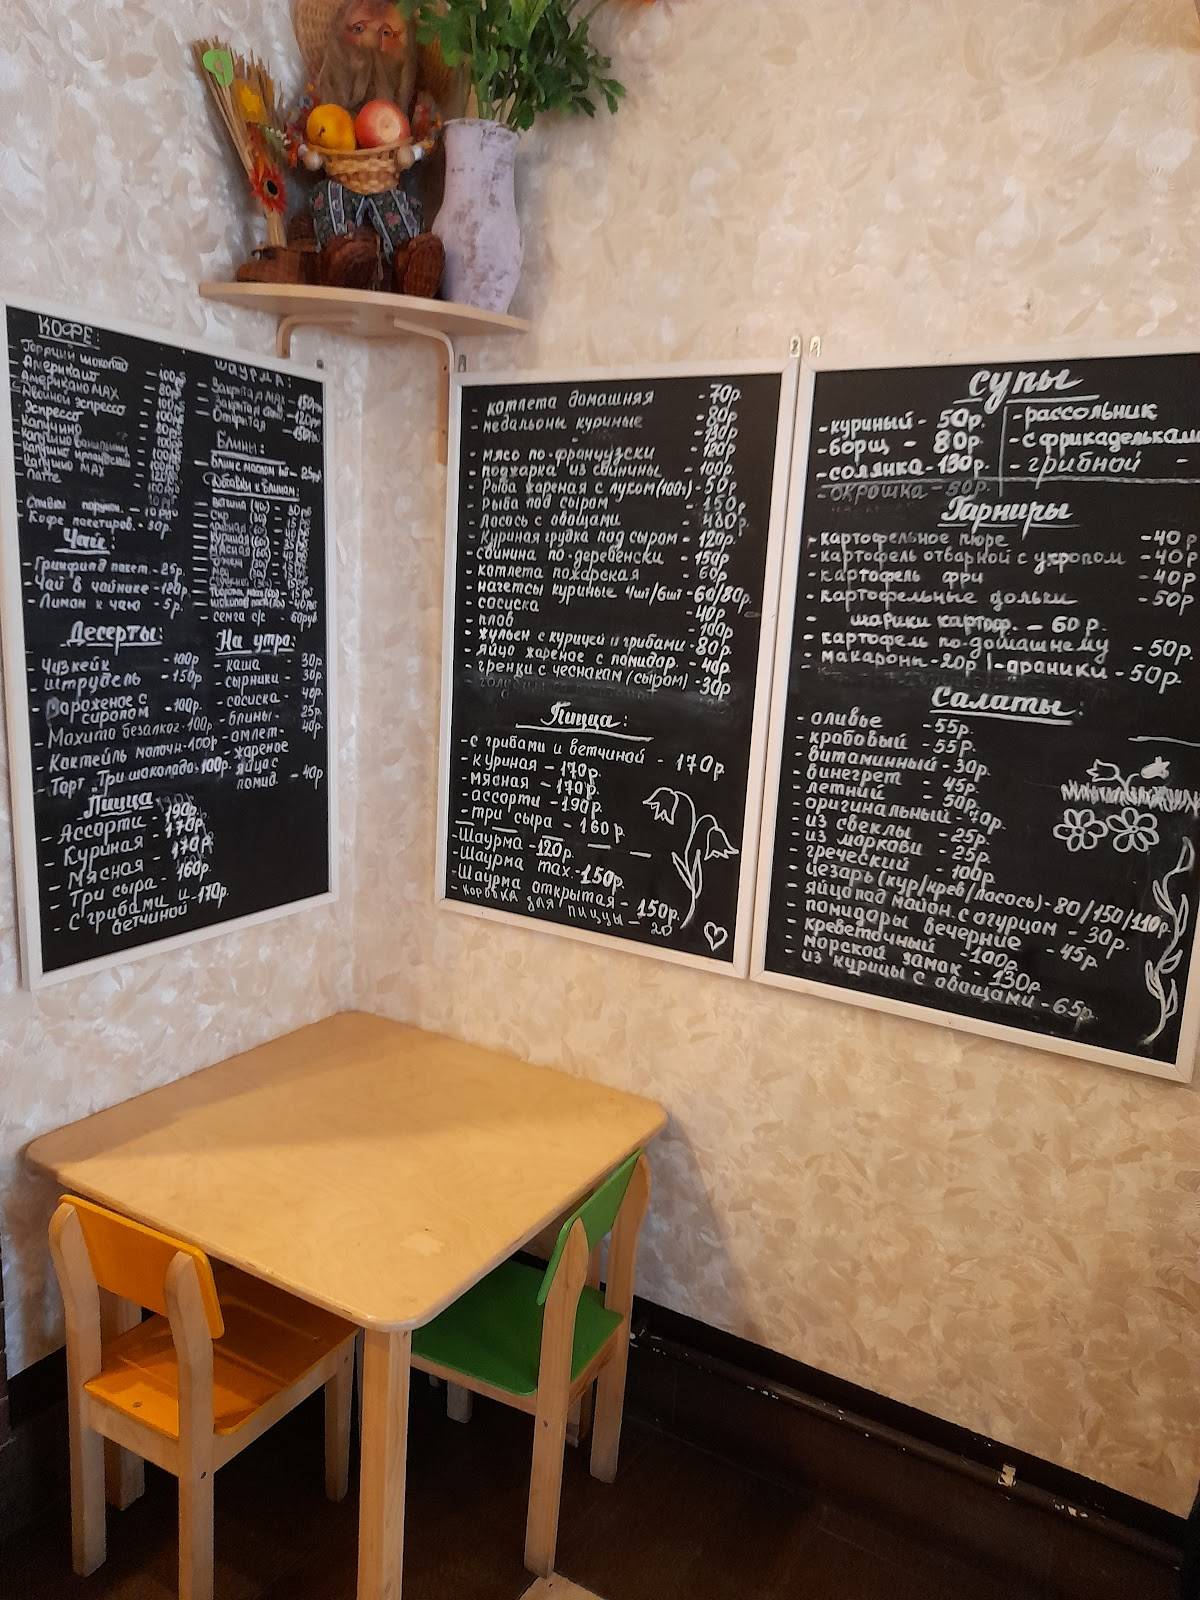 КОФЕ:
- Горячий шоколад - 100р
- Американо - 80р
- Американо МАХ - 100р
- Двойной эспрессо
- Эспрессо
- Капучино
- Капучино
- Капучино
- Капучино МАХ
- Латте
- Сливки порцион. - 10руб
- Кофе пакетиров. - 30р.
Чай:
- Гринфилд пакет. - 25р.
- Чай в чайнике - 120р.
- Лимон к чаю - 5р.
Десерты:
- Чизкейк - 100р
- Штрудель - 150р
- Мороженое с
сиропом - 100р.
- Махито безалког - 100р
- Коктейль молочн - 100р
- Торт "Три шоколада" - 100р.
Пицца
- Ассорти - 190р.
- Куриная - 170р.
- Мясная - 170р
- Три сыра - 160р.
- С грибами и
ветчиной - 170р.
ШАУРМА:
- Закрытая МАХ - 150р
- Закрытая - 120р
- Открытая - 150р
Блины:
- Блин с маслом - 25руб
Добавки к блинам:
- ветчина - 30руб
- сыр
- куриная
- мясная
- мёд
- семга с/с - 60руб
На утро:
- каша - 30р.
- сырники - 30р.
- сосиска - 40р.
- блины - 25р.
- омлет - 40р.
- жареное
яйцо с
помид. - 40р
- котлета домашняя - 70р
- медальоны куриные - 80р
- 130р
- мясо по-французски - 120р
- поджарка из свинины - 100р.
- Рыба жареная с луком (100г) - 50р
- Рыба под сыром - 150р
- Лосось с овощами - 480р
- Куриная грудка под сыром - 120р.
- свинина по-деревенски - 150р
- котлета пожарская - 60р
- нагетсы куриные 4шт/6шт - 60/80р.
- сосиска - 40р
- плов - 100р
- жульен с курицей и грибами - 80р.
- яйцо жареное с помидор. - 40р
- гренки с чеснакам (сыром) - 30р
Пицца:
- с грибами и ветчиной - 170р.
- куриная - 170р.
- мясная - 170р.
- ассорти - 190р.
- три сыра - 160р.
- Шаурма - 120р.
- Шаурма max - 150р.
- Шаурма открытая - 150р.
- коробка для пиццы - 20
Супы
- куриный - 50р.
- борщ - 80р.
- солянка - 130р.
- окрошка - 50р.
- рассольник
- с фрикадельками
- грибной -
Гарниры
- картофельное пюре - 40р
- картофель отварной с укропом - 40р
- картофель фри - 40р
- картофельные дольки - 50р
- шарики картоф. - 60р.
- картофель по-домашнему - 50р.
- макароны - 20р | - драники - 50р.
Салаты:
- оливье - 55р.
- крабовый - 55р.
- витаминный - 30р.
- винегрет - 45р.
- летний - 50р.
- оригинальный - 70р.
- из свеклы - 25р.
- из маркови - 25р.
- греческий - 100р.
- цезарь (кур/крев/лосось) - 80/150/110р.
- яйцо под майон. с огурцом - 30р.
- помидоры вечерние - 45р
- креветочный - 100р
- морской замок - 130р
- из курицы с овощами - 65р.